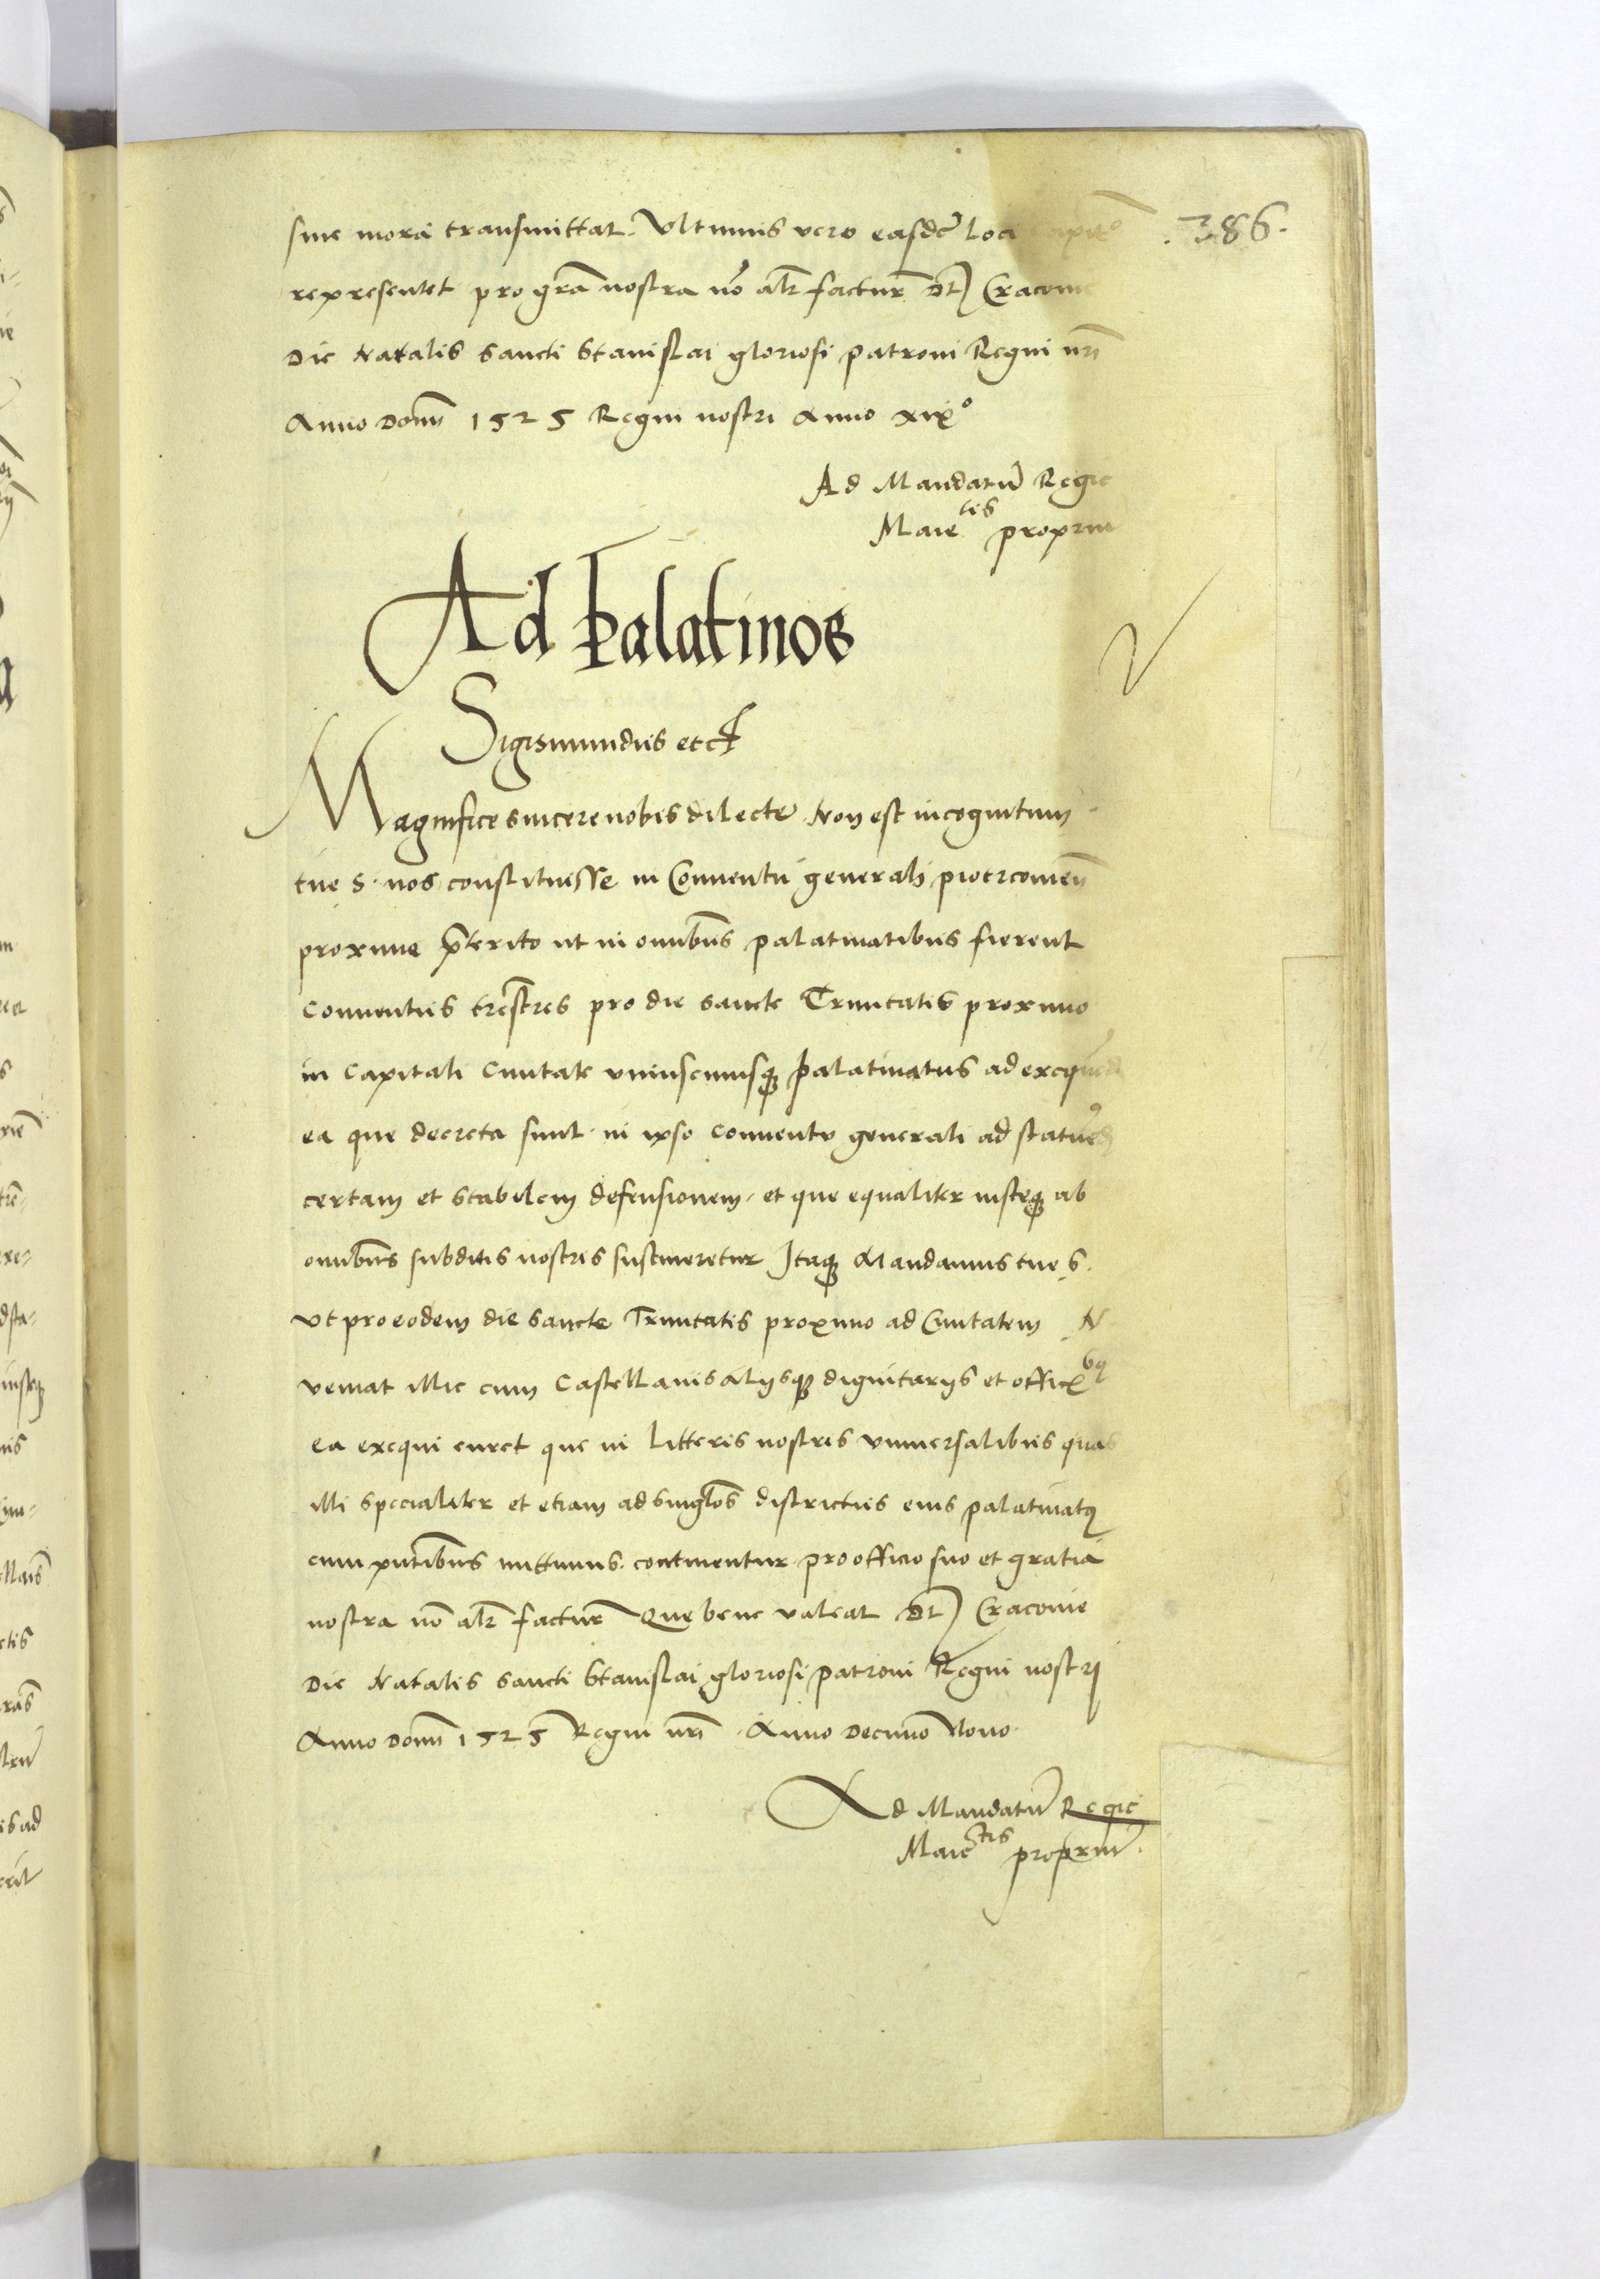 .386.
sine mora transmittat. Ultimus vero easdē loci
representet pro grā nostra nō alr̄ facturꝰ Dt̄ Cracovie
Die Natalis Sancti Stanislai gloriosi patroni Regni nr̄i
Anno Domī 1525 Regni nostri Anno xixº
Ad Mandatū Regie
Maietis propriū
Ad Palatinos
Sigismundus etc
Magnifice sincere nobis dilecte Non est incognitum
tue S. nos constituisse in Conventu generali piotrcovieñ
proxime p̄terito ut in omībus palatinatibus fierent
conventus trēstres pro die sancte Trinitatis proximo
in Capitali Civitate uniuscuiusqꝫ palatinatus ad exequēd
ea que decreta sunt in ipso conventu generali ad statuēd
certam et stabilem defensionem. et que equaliter iusteqꝫ ab
omībus subditis nostris sustineretur Itaqꝫ Mandamus tue S.
ut pro eodem die sancte Trinitatis proximo ad Civitatem N
veniat illic cum Castellanis aliisqꝫ dignitariis et officꝫbꝰ
ea exequi curet que in litteris nostris universalibus quas
illi specialiter et etiam ad singlos districtus eius palatinatꝰ
cum pn̄tibus mittimus. continentur pro officio suo et gratia
nostra nō alr̄ facturꝰ Que bene valeat Dt̄ Cracovie
Die Natalis Sancti Stanislai gloriosi patroni Regni nostri
Anno Domī 1525 Regni nr̄i Anno Decimo Nono.
Ad Mandatū Regie
Maietis propriū.